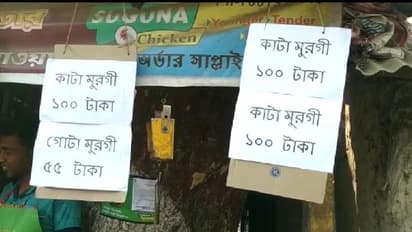 SUGUNA
Chicken
Younger Tender
অর্ডার সাপ্লাই
কাটা মুরগী
১০০ টাকা
গোটা মুরগী
৫৫ টাকা
কাটা মুরগী
১০০ টাকা
কাটা মুরগী
১০০ টাকা